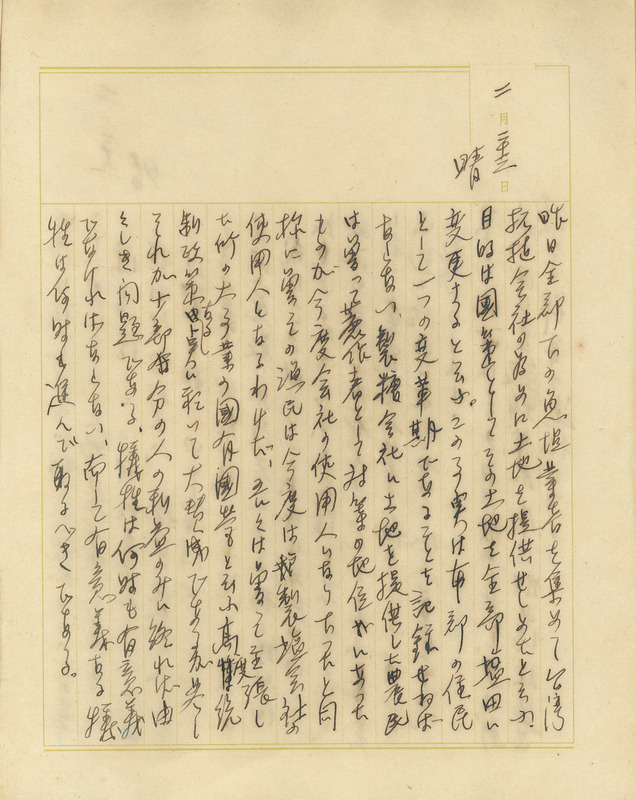 二月十三日
晴
昨日全郡下の魚塭業者を集めて台湾
拓殖会社の為めに土地を提供せしめたと云ふ、
目的は國策としてその土地を全部塩田に
変更すると云ふ。この事実は本郡の住民
として一つの変革期であることを記録せねば
ならない、製糖会社に土地を提供した農民
は曽って蔗作者として対等の地位がにあった
ものが今度会社の使用人になり下ったと同
様に曽その漁民は今度は製塩会社の
使用人となるわけだ、吾々は曽って主張し
た所の大事業の國有國営と云ふ高度統
制政策の実現に於いて大賛成であるが若し
それが少部分の人の利益のみに終れば由
々しき問題である。犠牲は何時も有意義
でなければならない、而して有意義なる犠
牲は何時も進んで取るべきである。